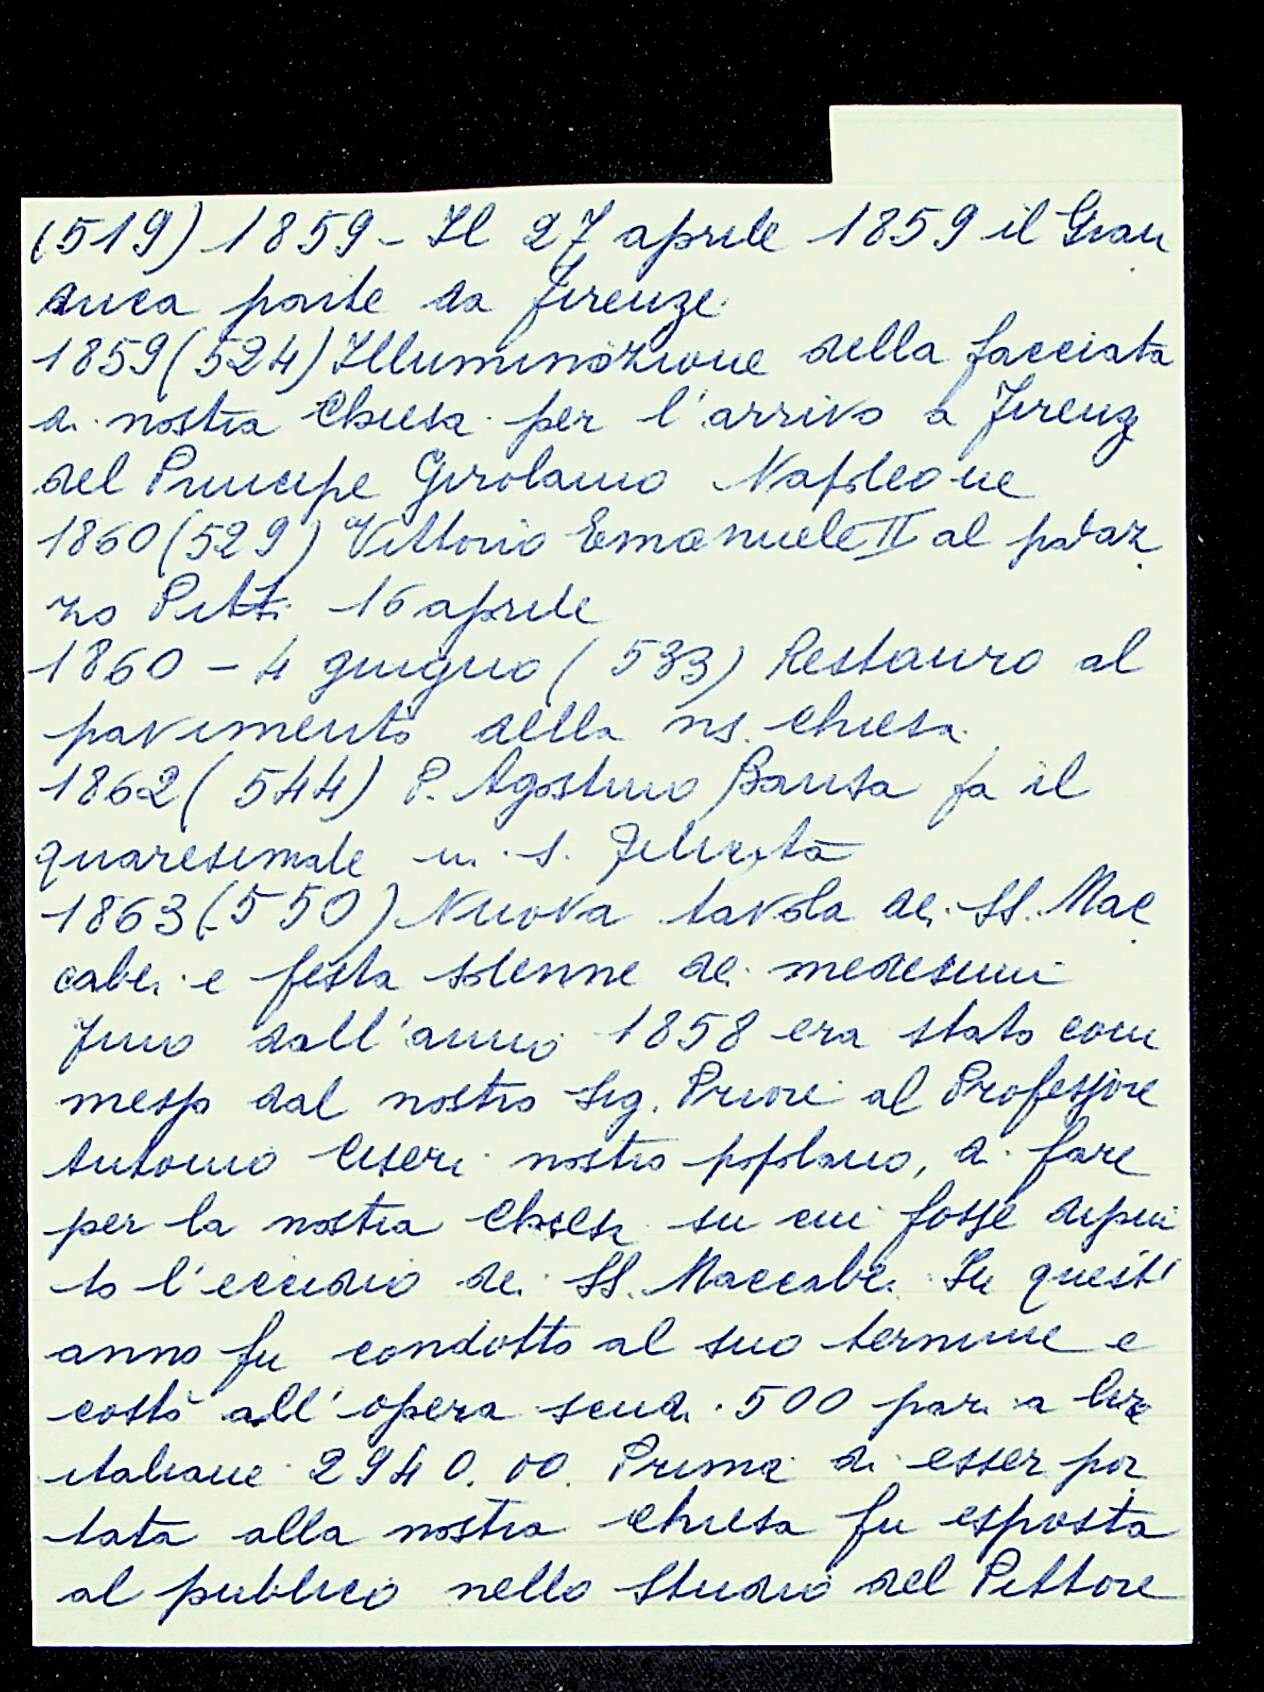 (519) 1859 - Il 27 aprile 1859 il Gran
duca parte da Firenze.
1859 (524) Illuminazione della facciata
di nostra Chiesa per l'arrivo a Firenz
del Principe Girolamo Napoleone
1860 (529) Vittorio Emanuele II al palaz
zo Pitti 16 aprile
1860 - 4 giugno (533) Restauro al
pavimento della ns. chiesa.
1862 (544) P. Agostino Bausa fa il
quaresimale in S. Felicita
1863 (550) Nuova tavola dei SS. Mac
cabei e festa solenne dei medesimi
Fino dall'anno 1858 era stato com
messo dal nostro Sig. Priore al Professore
Antonio Ciseri nostro popolano, di fare
per la nostra Chiesa su cui fosse dipin
to l'eccidio dei SS. Maccabei. In quest'
anno fu condotto al suo termine e
costò all'opera scudi 500 pari a lire
italiane 2940.00. Prima di esser por
tata alla nostra Chiesa fu esposta
al pubblico nello Studio del Pittore